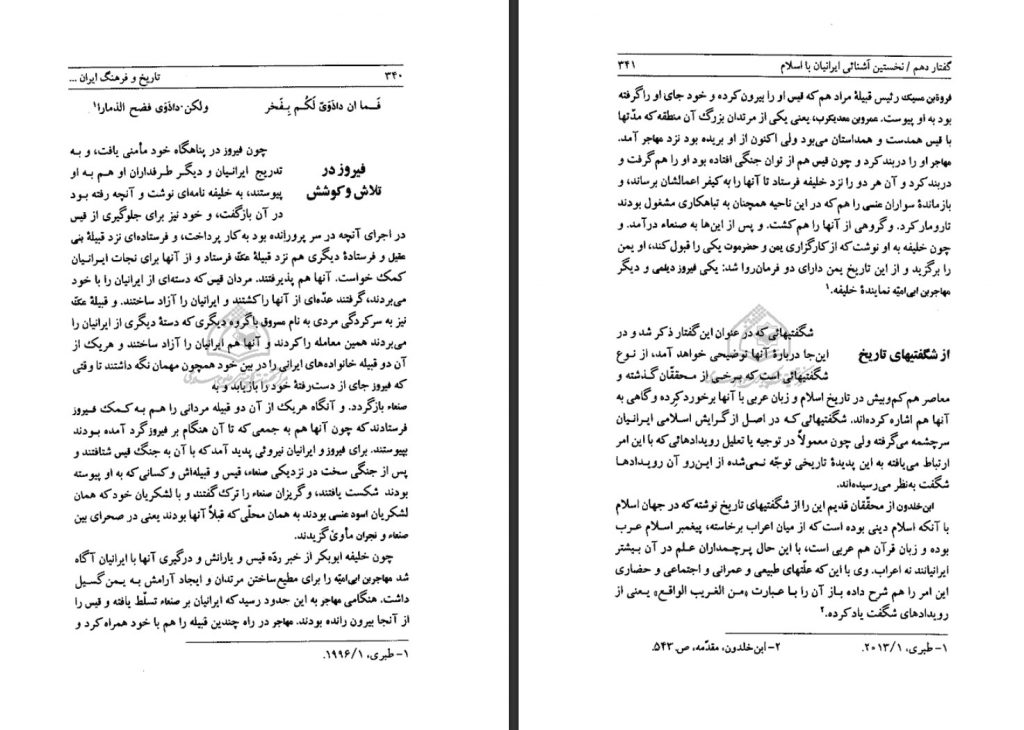 ۳۴۰ تاریخ و فرهنگ ایران ...
فَـما ان داذَوَیّ لَکُـم بِـفَخر ولکن داذَوَی فضح الذمارا۱
فیروز در
تلاش و کوشش
چون فیروز در پناهگاه خود مأمنی یافت، و بـه
تدریج ایرانـیان و دیگـر طـرفداران او هـم بـه او
پیوستند، به خلیفه نامه‌ای نوشت و آنچه رفته بـود
در آن بازگفت، و خود نیز برای جلوگیری از قیس
در اجرای آنچه در سر پرورانده بود به کار پرداخت، و فرستاده‌ای نزد قبیلهٔ بنی
عقیل و فرستادهٔ دیگری هم نزد قبیلهٔ عکّ فرستاد و از آنها برای نجات ایـرانـیان
کمک خواست. آنها هم پذیرفتند. مردان قیس که دسته‌ای از ایرانیان را با خود
می‌بردند، گرفتند عدّه‌ای از آنها را کشتند و ایرانیان را آزاد ساختند. و قبیلهٔ عکّ
نیز به سرکردگی مردی به نام مسروق با گروه دیگری که دستهٔ دیگری از ایرانیان را
می‌بردند همین معامله را کردند و آنها هم ایرانیان را آزاد ساختند و هریک از
آن دو قبیله خانواده‌های ایرانی را در بین خود همچون مهمان نگه داشتند تا وقتی
که فیروز جای از دست‌رفتهٔ خود را بازیابد و به
صنعاء بازگردد. و آنگاه هریک از آن دو قبیله مردانی را هـم بـه کـمک فـیروز
فرستادند که چون آنها هم به جمعی که تا آن هنگام بر فیروز گرد آمده بـودند
بپیوستند. برای فیروز و ایرانیان نیروئی پدید آمد که با آن به جنگ قیس شتافتند و
پس از جنگی سخت در نزدیکی صنعاء، قیس و قبیله‌اش و کسانی که به او پیوسته
بودند شکست یافتند، و گریزان صنعاء را ترک گفتند و با لشکریان خود که همان
لشکریان اسود عنسی بودند به همان محلّی که قبلاً آنها بودند یعنی در صحرای بین
صنعاء و نجران مأوی گزیدند.
چون خلیفه ابوبکر از خبر ردّه قیس و یارانش و درگیری آنها با ایرانیان آگاه
شد مهاجربن ابی‌امیّه را برای مطیع‌ساختن مرتدان و ایجاد آرامش به یـمن گسیل
داشت. هنگامی مهاجر به این حدود رسید که ایرانیان بر صنعاء تسلّط یافته و قیس را
از آنجا بیرون رانده بودند. مهاجر در راه چندین قبیله را هم با خود همراه کرد و
۱- طبری، ۱۹۹۶/۱.
گفتار دهم / نخستین آشنائی ایرانیان با اسلام ۳۴۱
فروة‌بن مسیک رئیس قبیلهٔ مراد هم که قیس او را بیرون کرده و خود جای او را گرفته
بود به او پیوست. عمروبن معدیکرب، یعنی یکی از مرتدان بزرگ آن منطقه که مدّتها
با قیس همدست و همداستان می‌بود ولی اکنون از او بریده بود نزد مهاجر آمد.
مهاجر او را دربند کرد و چون قیس هم از توان جنگی افتاده بود او را هم گرفت و
دربند کرد و آن هر دو را نزد خلیفه فرستاد تا آنها را به کیفر اعمالشان برساند، و
بازماندهٔ سواران عنسی را هم که در این ناحیه همچنان به تباهکاری مشغول بودند
تارومار کرد. و گروهی از آنها را هم کشت. و پس از این‌ها به صنعاء درآمد. و
چون خلیفه به او نوشت که از کارگزاری یمن و حضرموت یکی را قبول کند، او یمن
را برگزید و از این تاریخ یمن دارای دو فرمان‌روا شد: یکی فیروز دیلمی و دیگر
مهاجربن ابی‌امیّه نمایندهٔ خلیفه.۱
از شگفتیهای تاریخ
شگفتیهائی که در عنوان این گفتار ذکر شد و در
این‌جا دربارهٔ آنها توضیحی خواهد آمد، از نـوع
شگفتیهائی است که بـرخـی از مـحققّان گـذشته و
معاصر هم کم‌وبیش در تاریخ اسلام و زبان عربی با آنها برخورد کرده و گاهی به
آنها هم اشاره کرده‌اند. شگفتیهائی کـه در اصـل از گـرایش اسـلامی ایـرانیان
سرچشمه می‌گرفته ولی چون معمولاً در توجیه یا تعلیل رویدادهائی که با این امر
ارتباط می‌یافته به این پدیدهٔ تاریخی توجّه نـمی‌شده از ایـن‌رو آن رویـدادهـا
شگفت به‌نظر می‌رسیده‌اند.
ابن‌خلدون از محقّقان قدیم این را از شگفتیهای تاریخ نوشته که در جهان اسلام
با آنکه اسلام دینی بوده است که از میان اعراب برخاسته، پیغمبر اسـلام عـرب
بوده و زبان قرآن هم عربی است، با این حال پـرچـمداران عـلم در آن بـیشتر
ایرانیانند نه اعراب. وی با این که علّتهای طبیعی و عمرانی و اجتماعی و حضاری
این امر را هم شرح داده بـاز آن را بـا عـبارت «مـن الغریب الواقـع» یـعنی از
رویدادهای شگفت یاد کرده.۲
۱- طبری، ۲۰۱۳/۱. ۲- ابن‌خلدون، مقدّمه، ص. ۵۴۳.